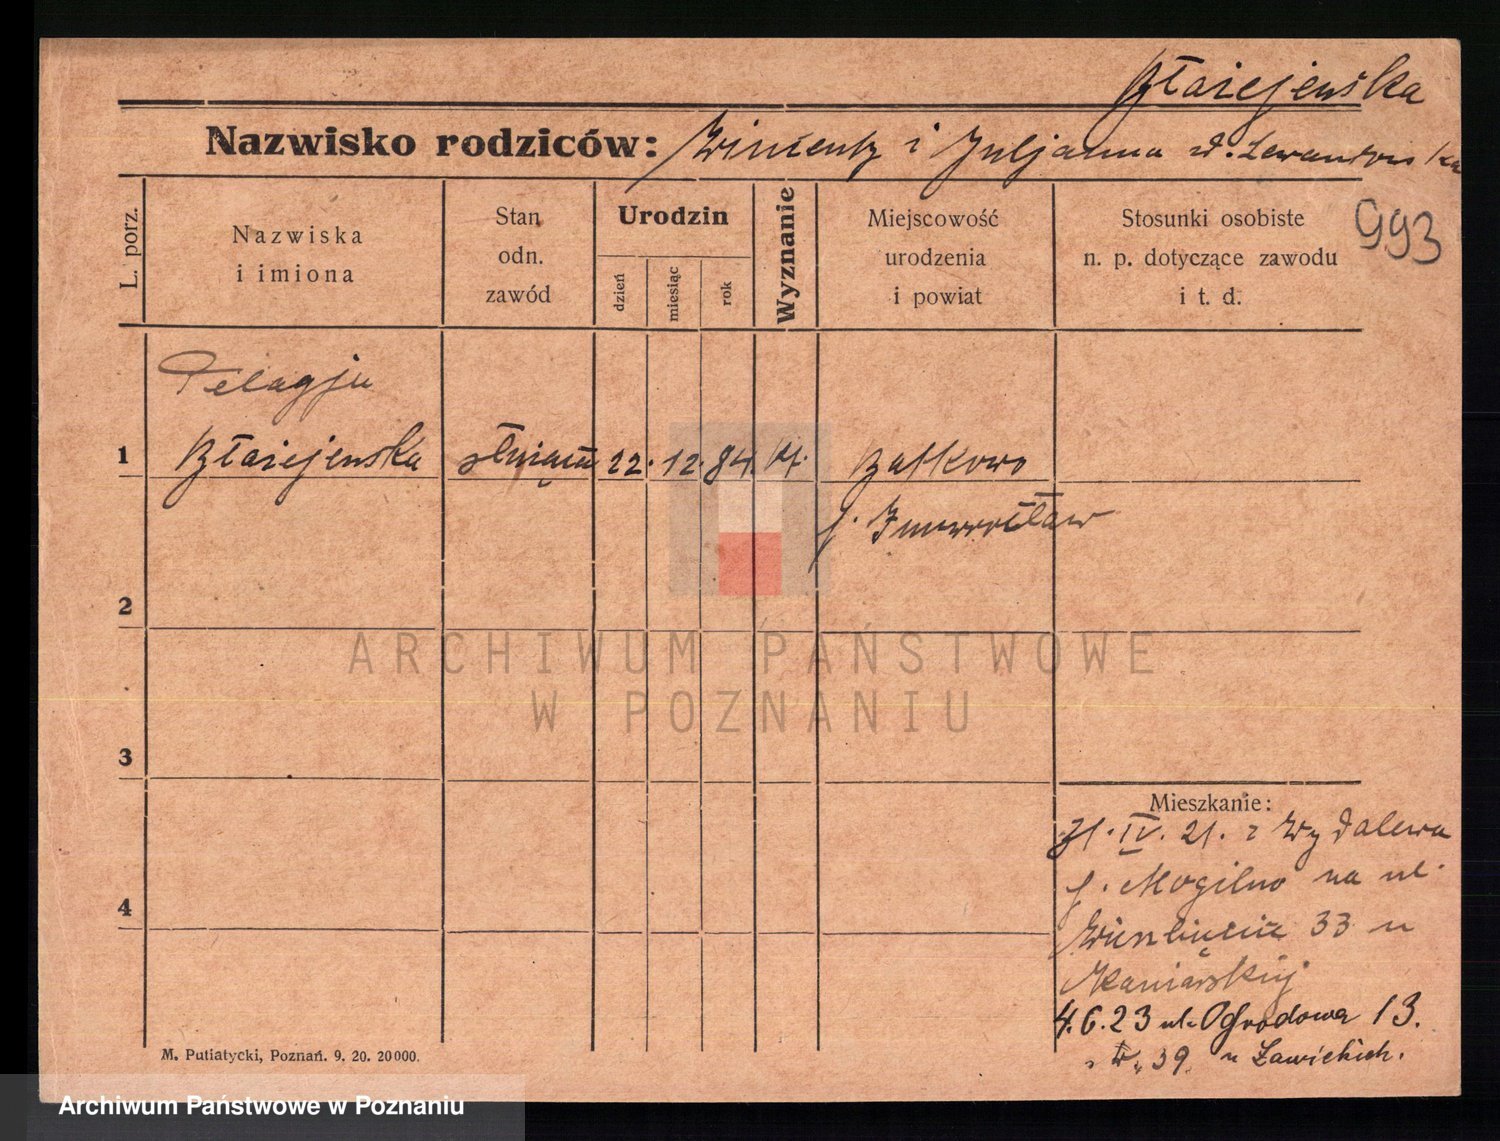 Błażejewska
Nazwisko rodziców: Wincenty i Juljanna z d. Lewandowska
993
L. porz.
Nazwiska
i imiona
Stan
odn.
zawód
Urodzin
dzień
miesiąc
rok
Wyznanie
Miejscowość
urodzenia
i powiat
Stosunki osobiste
n. p. dotyczące zawodu
i t. d.
Pelagja
1 Błażejewska służąca 22. 12. 84. kt. Batkowo
p. Inowrocław
2
ARCHIWUM PAŃSTWOWE
W POZNANIU
3
Mieszkanie:
IV. 21. z Wydalewa
p. Mogilno na ul.
33 u
4
4.6.23 ul. Ogrodowa 13.
39 u Zawickich.
M. Putiatycki, Poznań. 9. 20. 20000.
Archiwum Państwowe w Poznaniu